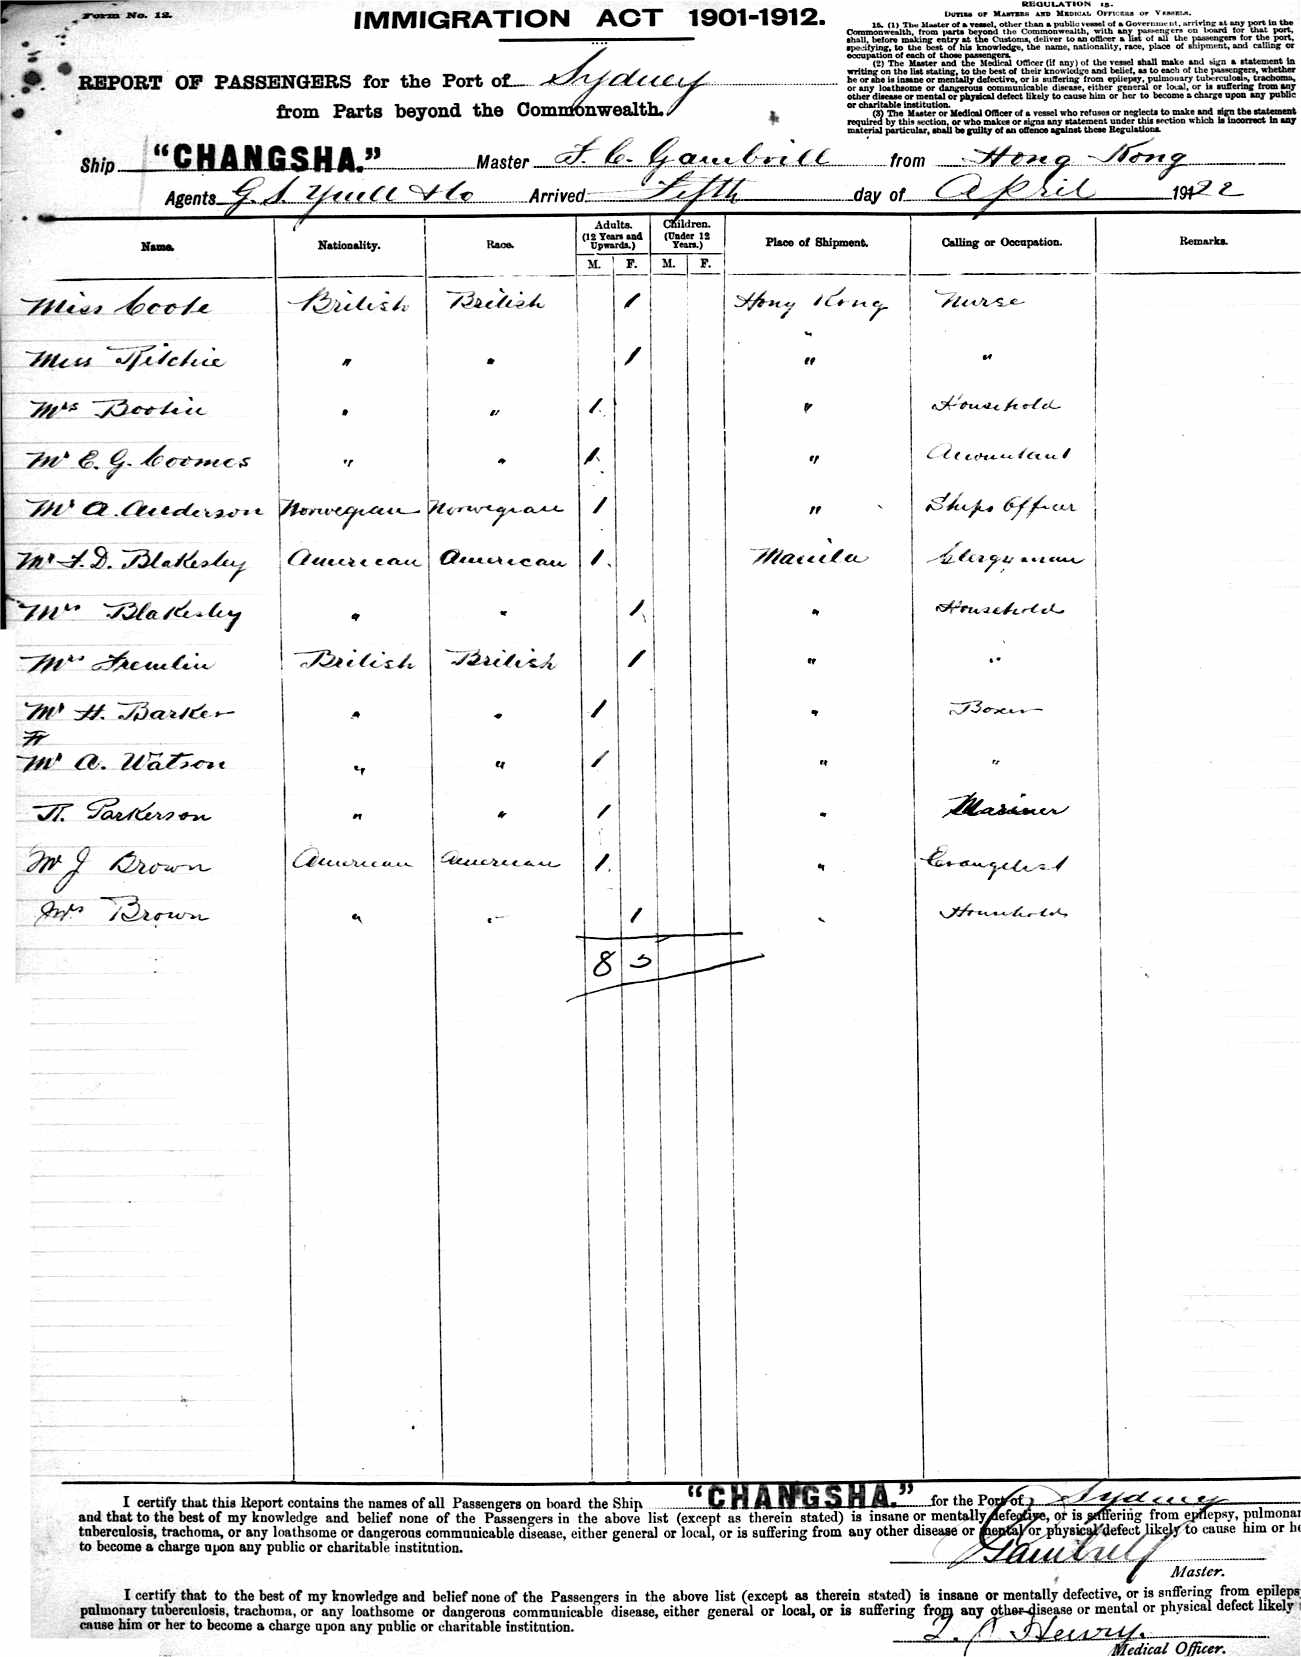 Form No. 12.
IMMIGRATION ACT 1901-1912.
REGULATION 15.
DUTIES OF MASTERS AND MEDICAL OFFICERS OF VESSELS.
15. (1) The Master of a vessel, other than a public vessel of a Government, arriving at any port in the
Commonwealth, from parts beyond the Commonwealth, with any passengers on board for that port,
shall, before making entry at the Customs, deliver to an officer a list of all the passengers for the port,
specifying, to the best of his knowledge, the name, nationality, race, place of shipment, and calling or
occupation of each of those passengers.
(2) The Master and the Medical Officer (if any) of the vessel shall make and sign a statement in
writing on the list stating, to the best of their knowledge and belief, as to each of the passengers, whether
he or she is insane or mentally defective, or is suffering from epilepsy, pulmonary tuberculosis, trachoma,
or any loathsome or dangerous communicable disease, either general or local, or is suffering from any
other disease or mental or physical defect likely to cause him or her to become a charge upon any public
or charitable institution.
(3) The Master or Medical Officer of a vessel who refuses or neglects to make and sign the statement
required by this section, or who makes or signs any statement under this section which is incorrect in any
material particular, shall be guilty of an offence against these Regulations.
REPORT OF PASSENGERS for the Port of Sydney
from Parts beyond the Commonwealth.
Ship "CHANGSHA." Master F. C. Gambrill from Hong Kong
Agents G. S. Yuill & Co Arrived Fifth day of April 19122
Name. Nationality. Race. Adults. (12 Years and Upwards.) Children. (Under 12 Years.) Place of Shipment. Calling or Occupation. Remarks.
M. F. M. F.
Miss Coote British British 1 Hong Kong Nurse
Miss Ritchie " " 1 " "
Mrs Bootin " " 1 " Household
Mr E. G. Coomes " " 1 " Accountant
Mr A. Anderson Norwegian Norwegian 1 " Ships Officer
Mr F. D. Blakesley American American 1 Manila Clergyman
Mrs Blakesley " " 1 " Household
Mrs Fremlin British British 1 " "
Mr H. Barker " " 1 " Boxer
Mr A. Watson " " 1 " "
R. Parkerson " " 1 " Mariner
Mr J Brown American American 1 " Evangelist
Mrs Brown " " 1 " Household
8 5
I certify that this Report contains the names of all Passengers on board the Ship "CHANGSHA." for the Port of Sydney
and that to the best of my knowledge and belief none of the Passengers in the above list (except as therein stated) is insane or mentally defective, or is suffering from epilepsy, pulmonar
tuberculosis, trachoma, or any loathsome or dangerous communicable disease, either general or local, or is suffering from any other disease or mental or physical defect likely to cause him or he
to become a charge upon any public or charitable institution.
Gambrill
Master.
I certify that to the best of my knowledge and belief none of the Passengers in the above list (except as therein stated) is insane or mentally defective, or is suffering from epileps
pulmonary tuberculosis, trachoma, or any loathsome or dangerous communicable disease, either general or local, or is suffering from any other disease or mental or physical defect likely
cause him or her to become a charge upon any public or charitable institution.
Henry.
Medical Officer.